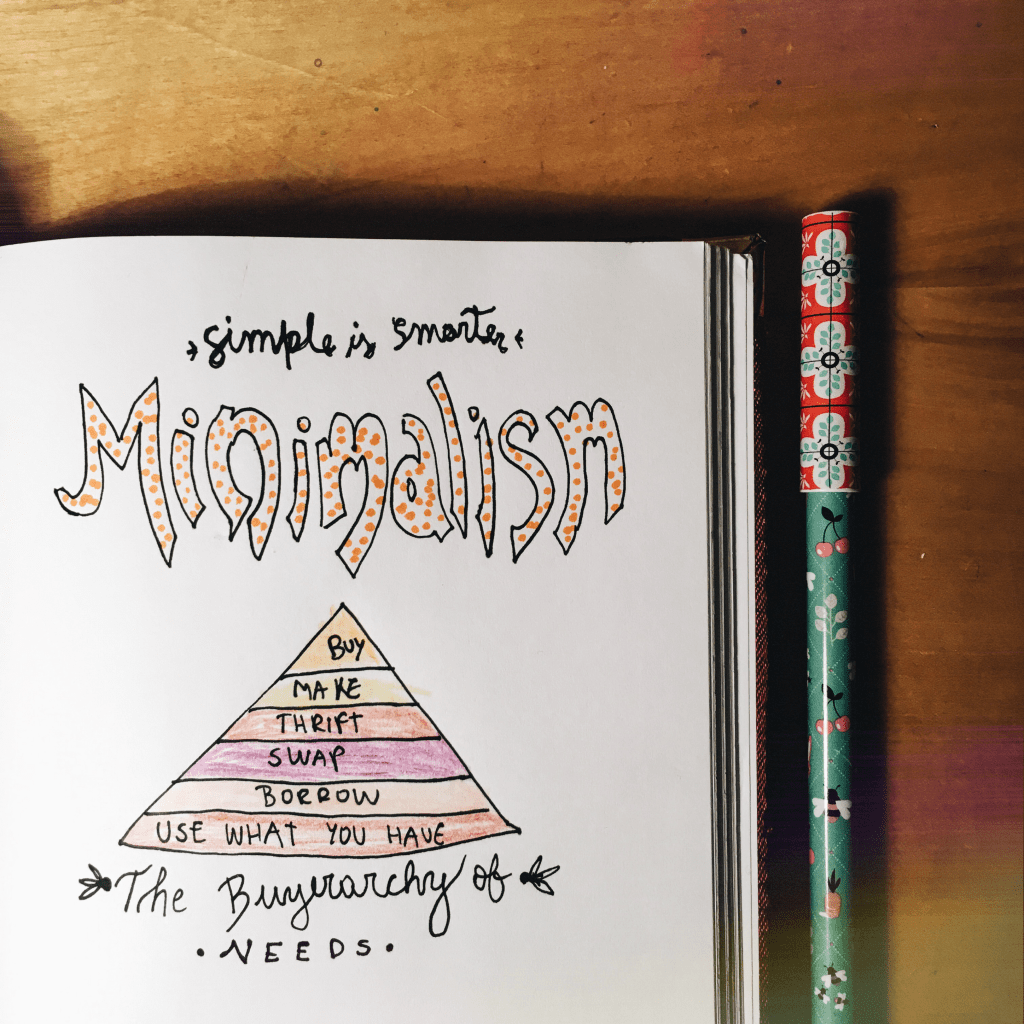 simple is smarter
Minimalism
BUY
MAKE
THRIFT
SWAP
BORROW
USE WHAT YOU HAVE
The Buyerarchy of
• NEEDS •